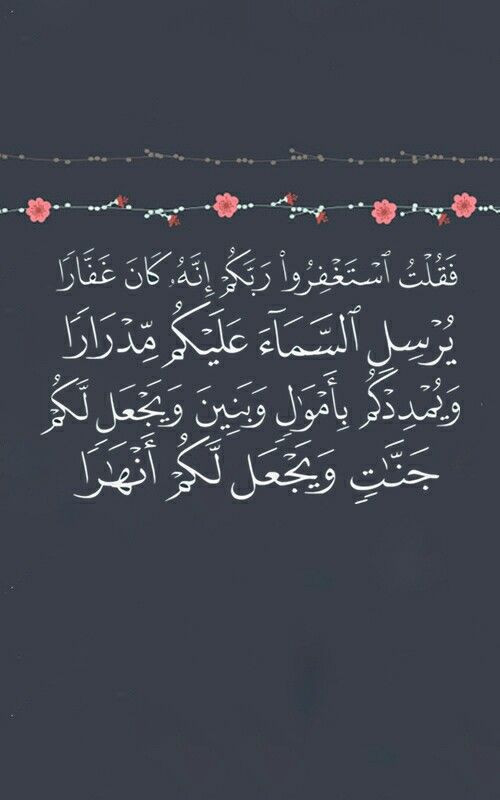 فَقُلْتُ ٱسْتَغْفِرُوا۟ رَبَّكُمْ إِنَّهُۥ كَانَ غَفَّارًا
يُرْسِلِ ٱلسَّمَآءَ عَلَيْكُم مِّدْرَارًا
وَيُمْدِدْكُم بِأَمْوَٰلٍ وَبَنِينَ وَيَجْعَل لَّكُمْ
جَنَّـٰتٍ وَيَجْعَل لَّكُمْ أَنْهَـٰرًا